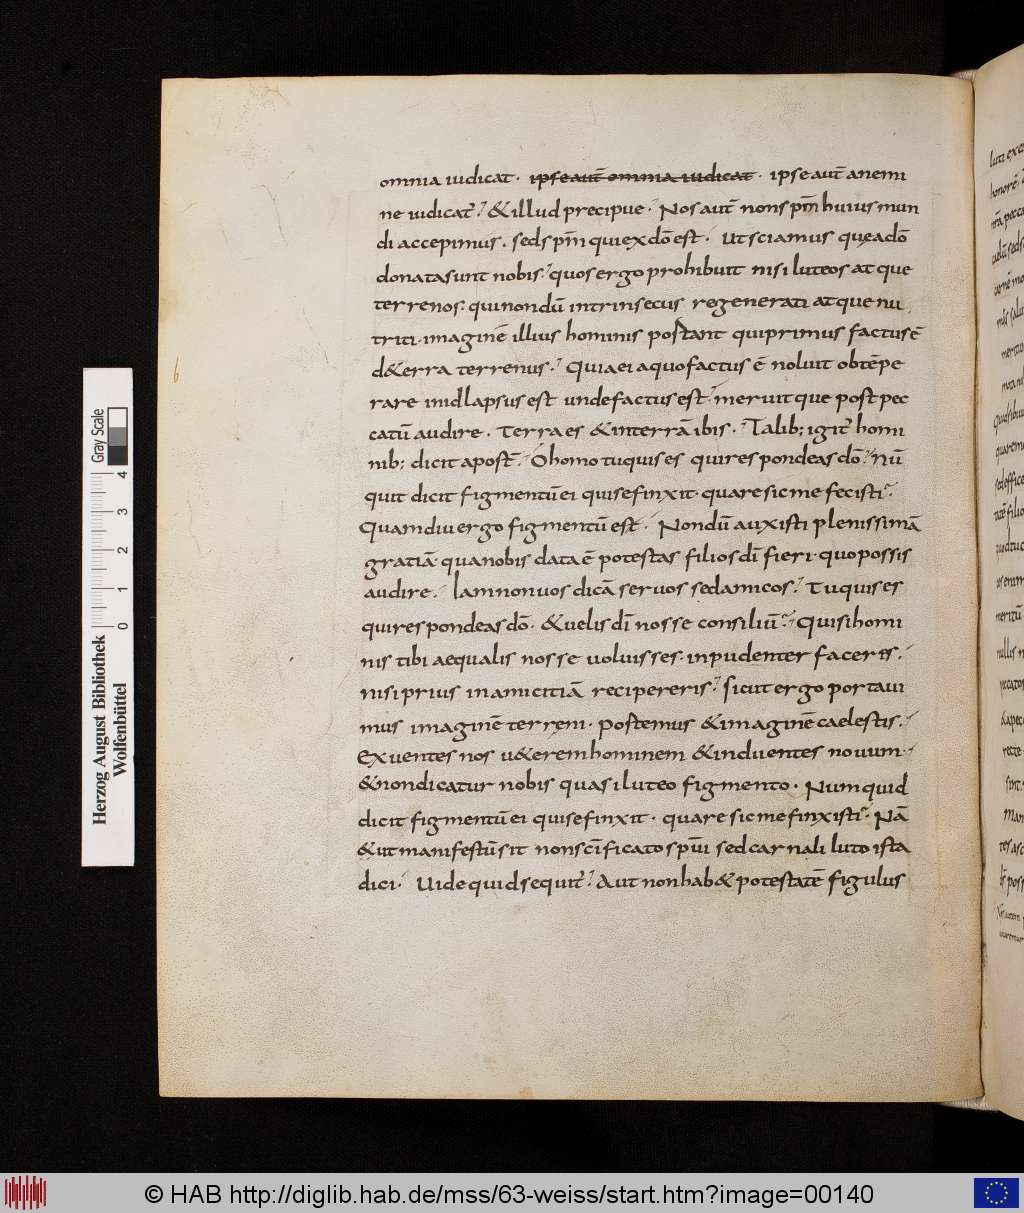 omnia iudicat· ipse aut̄ omnia iudicat· ipse aut̄ anemi
ne iudicat᷑ & illud precipue· Nos aut̄ non sp̄m huius mun
di accepimus, sed sp̄m qui ex dō est· Ut sciamus que a dō
donata sunt nobis· quos ergo prohibuit nisi luteos atque
terrenos· qui nondū intrinsecus regenerati atque nu
triti· imaginē illius hominis postant qui primus factus ē
d&erra terrenus· Quia ei a quo factus ē noluit obtēpe
rare in id lapsus est unde factus est· meruitque post pec
catū audire· Terra es & in terrā ibis· Talib; igit᷑ homi
nib; dicit apost̄· O homo tu quis es qui respondeas dō· nū
quit dicit figmentū ei qui se finxit· quare sic me fecisti·
Quamdiu ergo figmentū est· Nondū auxisti plenissimā
gratiā· qua nobis data ē potestas filios dī fieri· quo possis
audire· Iam non uos dicā seruos sed amicos· Tu quis es
qui respondeas dō· & uelis dī nosse consiliū· Qui si homi
nis tibi aequalis nosse uoluisses· inpudenter faceres·
nisi prius in amicitiā recipereris· sicut ergo portaui
mus imaginē terreni· postemus & imaginē caelestis·
Exuentes nos u&erem hominem & induentes nouum·
& non dicatur nobis quasi luteo figmento· Numquid
dicit figmentū ei qui se finxit· quare sic me finxisti· Nā
& ut manifestū sit non scīficato spūi sed carnali luto ista
dici· Uide quid sequit᷑· Aut non hab& potestatē figulus
Herzog August Bibliothek
Wolfenbüttel
0 1 2 3 4
Gray Scale
© HAB http://diglib.hab.de/mss/63-weiss/start.htm?image=00140